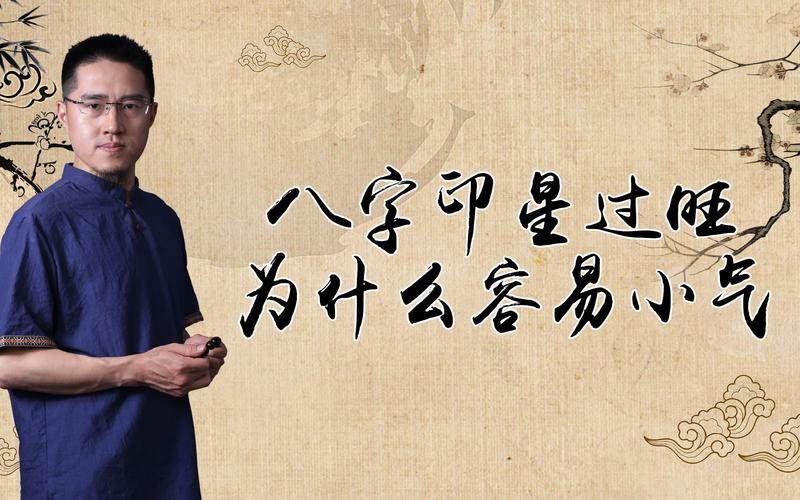 八字印星过旺
为什么容易小气